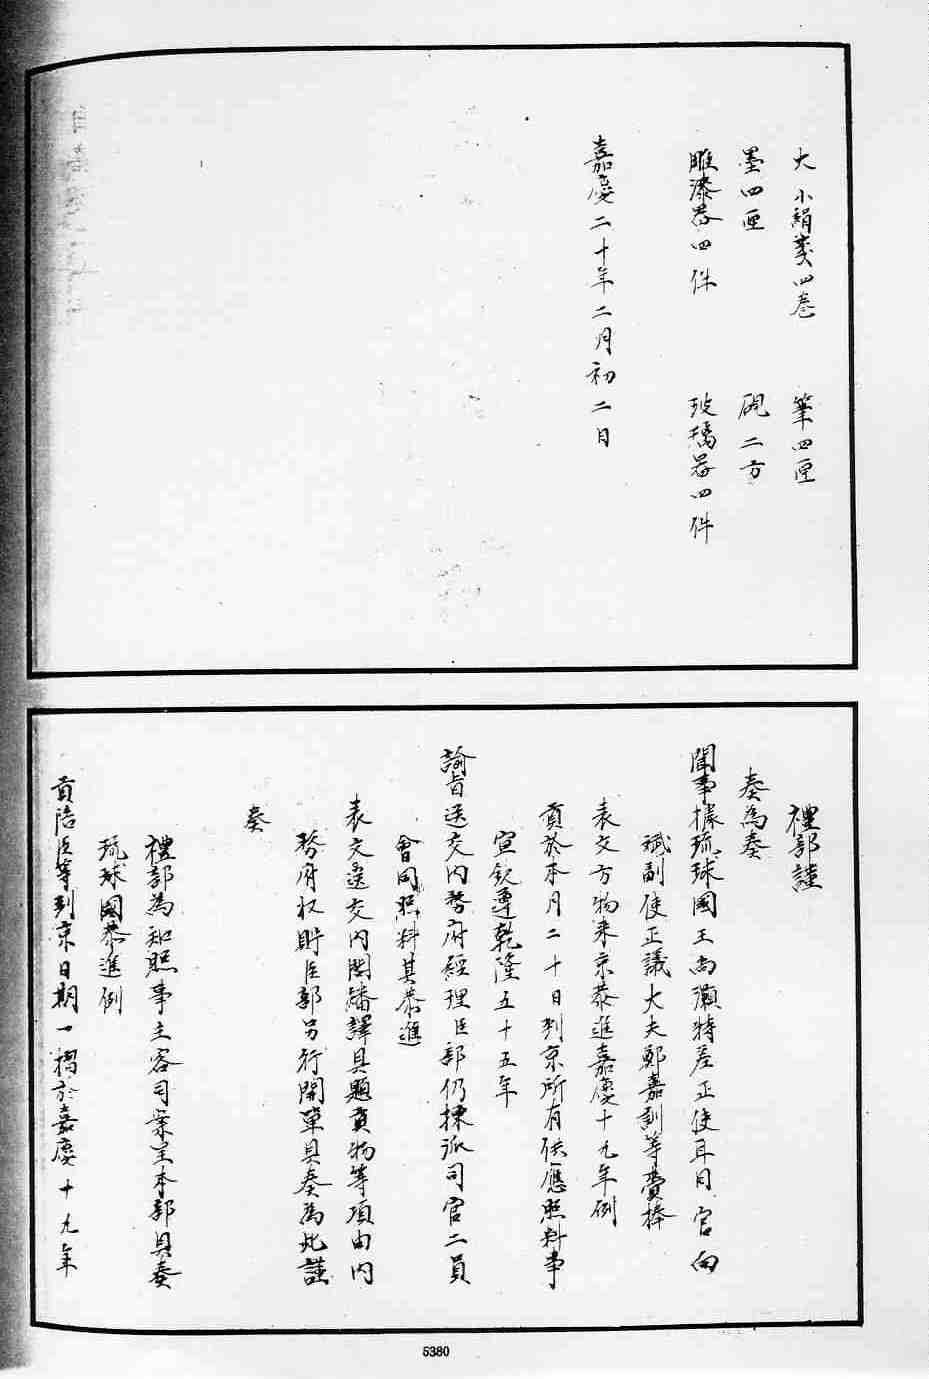 大小絹箋四卷 筆四匣
墨四匣 硯二方
雕漆器四件 玻璃器四件
嘉慶二十年二月初二日
禮部謹
奏為奏
聞事據琉球國王尚灝特差正使耳目官向
斌副使正議大夫鄭嘉訓等賫捧
表文方物來京恭進嘉慶十九年例
貢於本月二十日到京所有供應照料事
宣欽遵乾隆五十五年
諭旨送交內務府經理臣部仍揀派司官二員
會同照料其恭進
表文送交內閣繙譯具題貢物等項由內
務府收貯臣部另行開單具奏為此謹
奏
禮部為知照事主客司案呈本部具奏
琉球國恭進例
貢陪臣等到京日期一摺於嘉慶十九年
5380